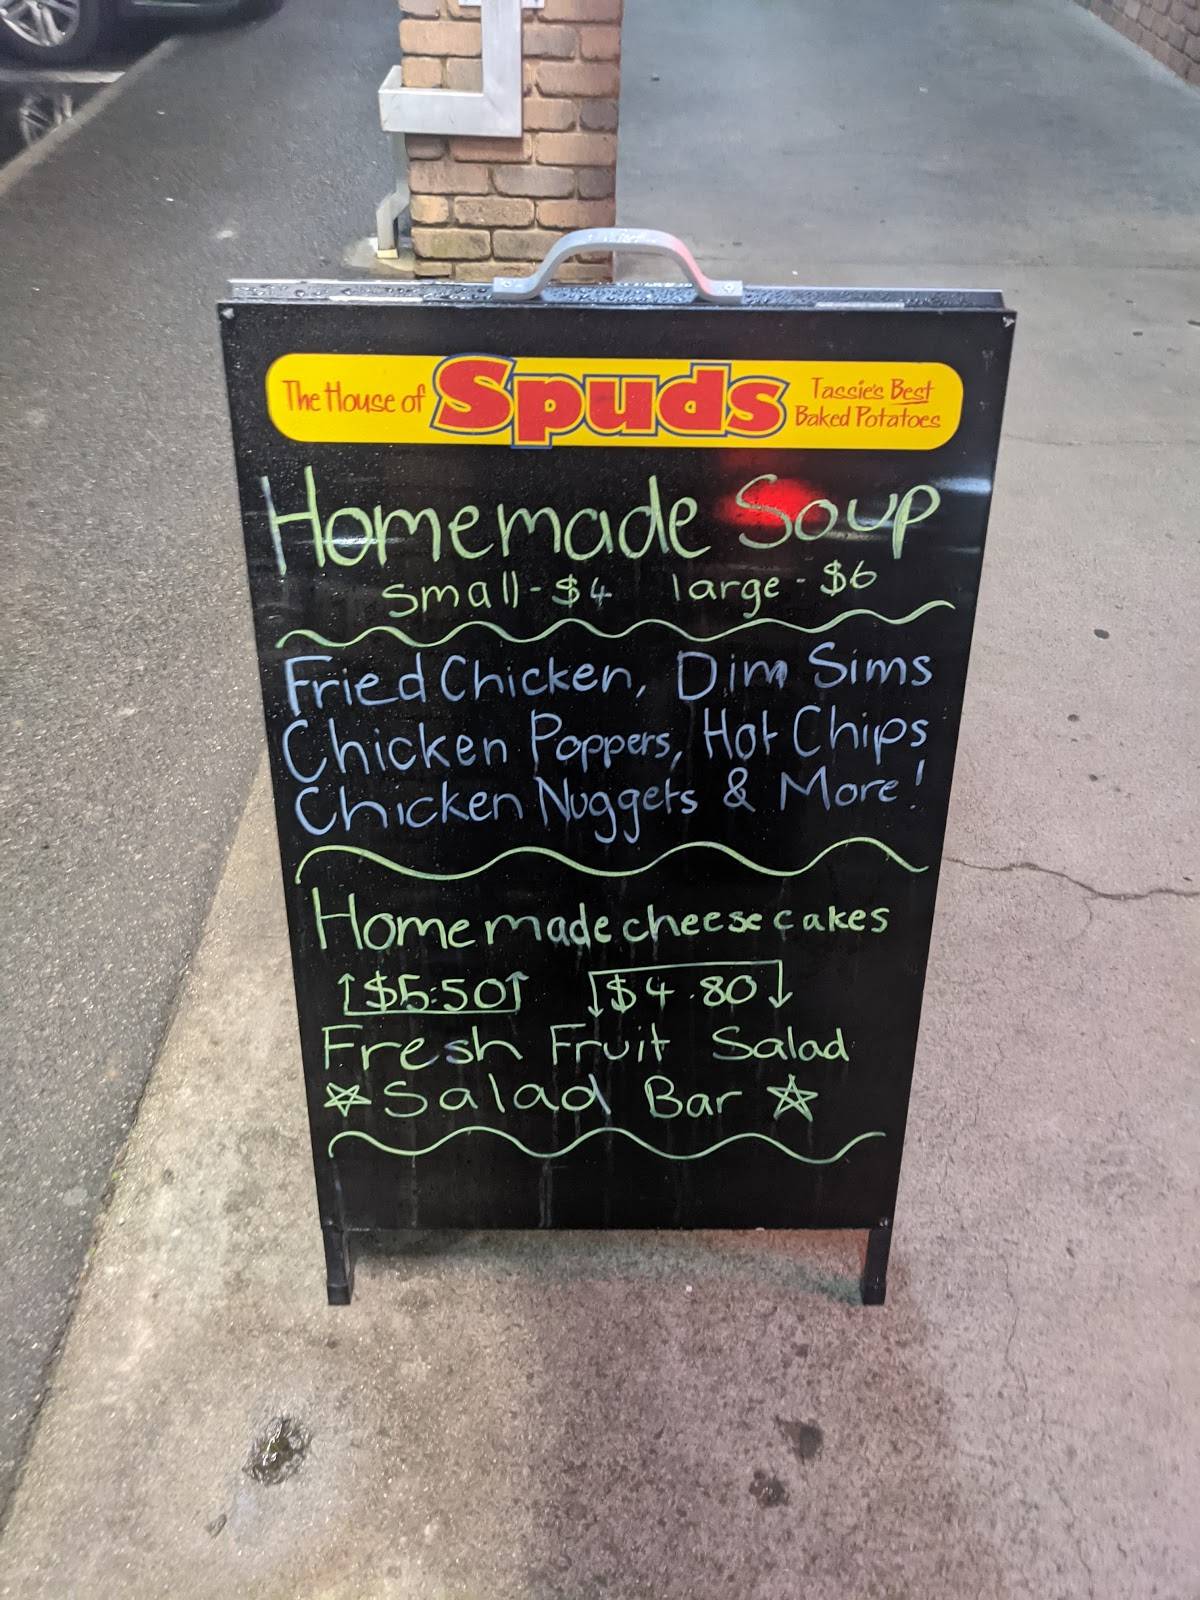 The House of Spuds Tassie's Best Baked Potatoes
Homemade Soup
small - $4 large - $6
Fried Chicken, Dim Sims
Chicken Poppers, Hot Chips
Chicken Nuggets & More!
Homemade cheesecakes
$5:50 $4.80
Fresh Fruit Salad
Salad Bar